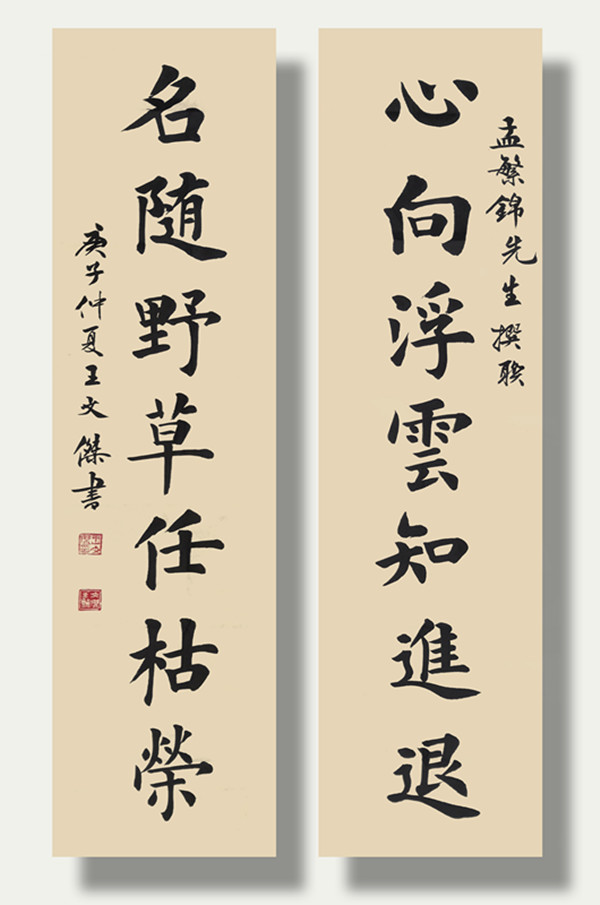 孟繁錦先生撰聯
心向浮雲知進退
名随野草任枯榮
庚子仲夏王文傑書